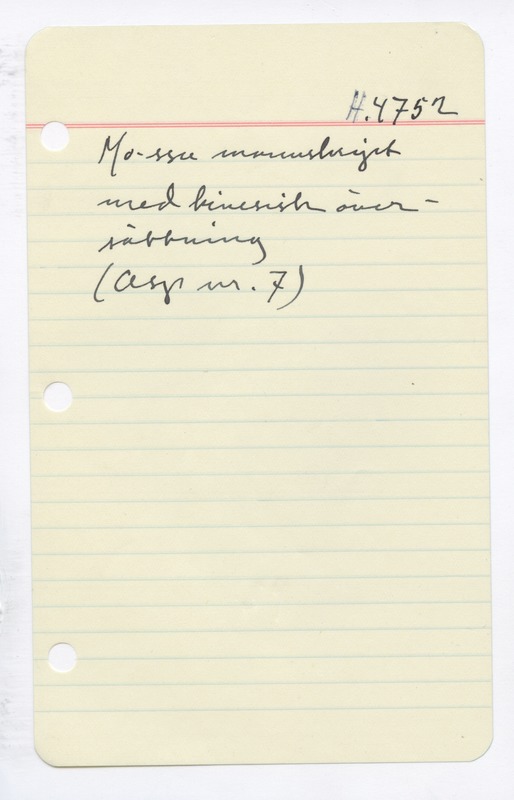 H.4752
Mo-ssu manuskript
med kinesisk över-
sättning
(Asp nr. 7)